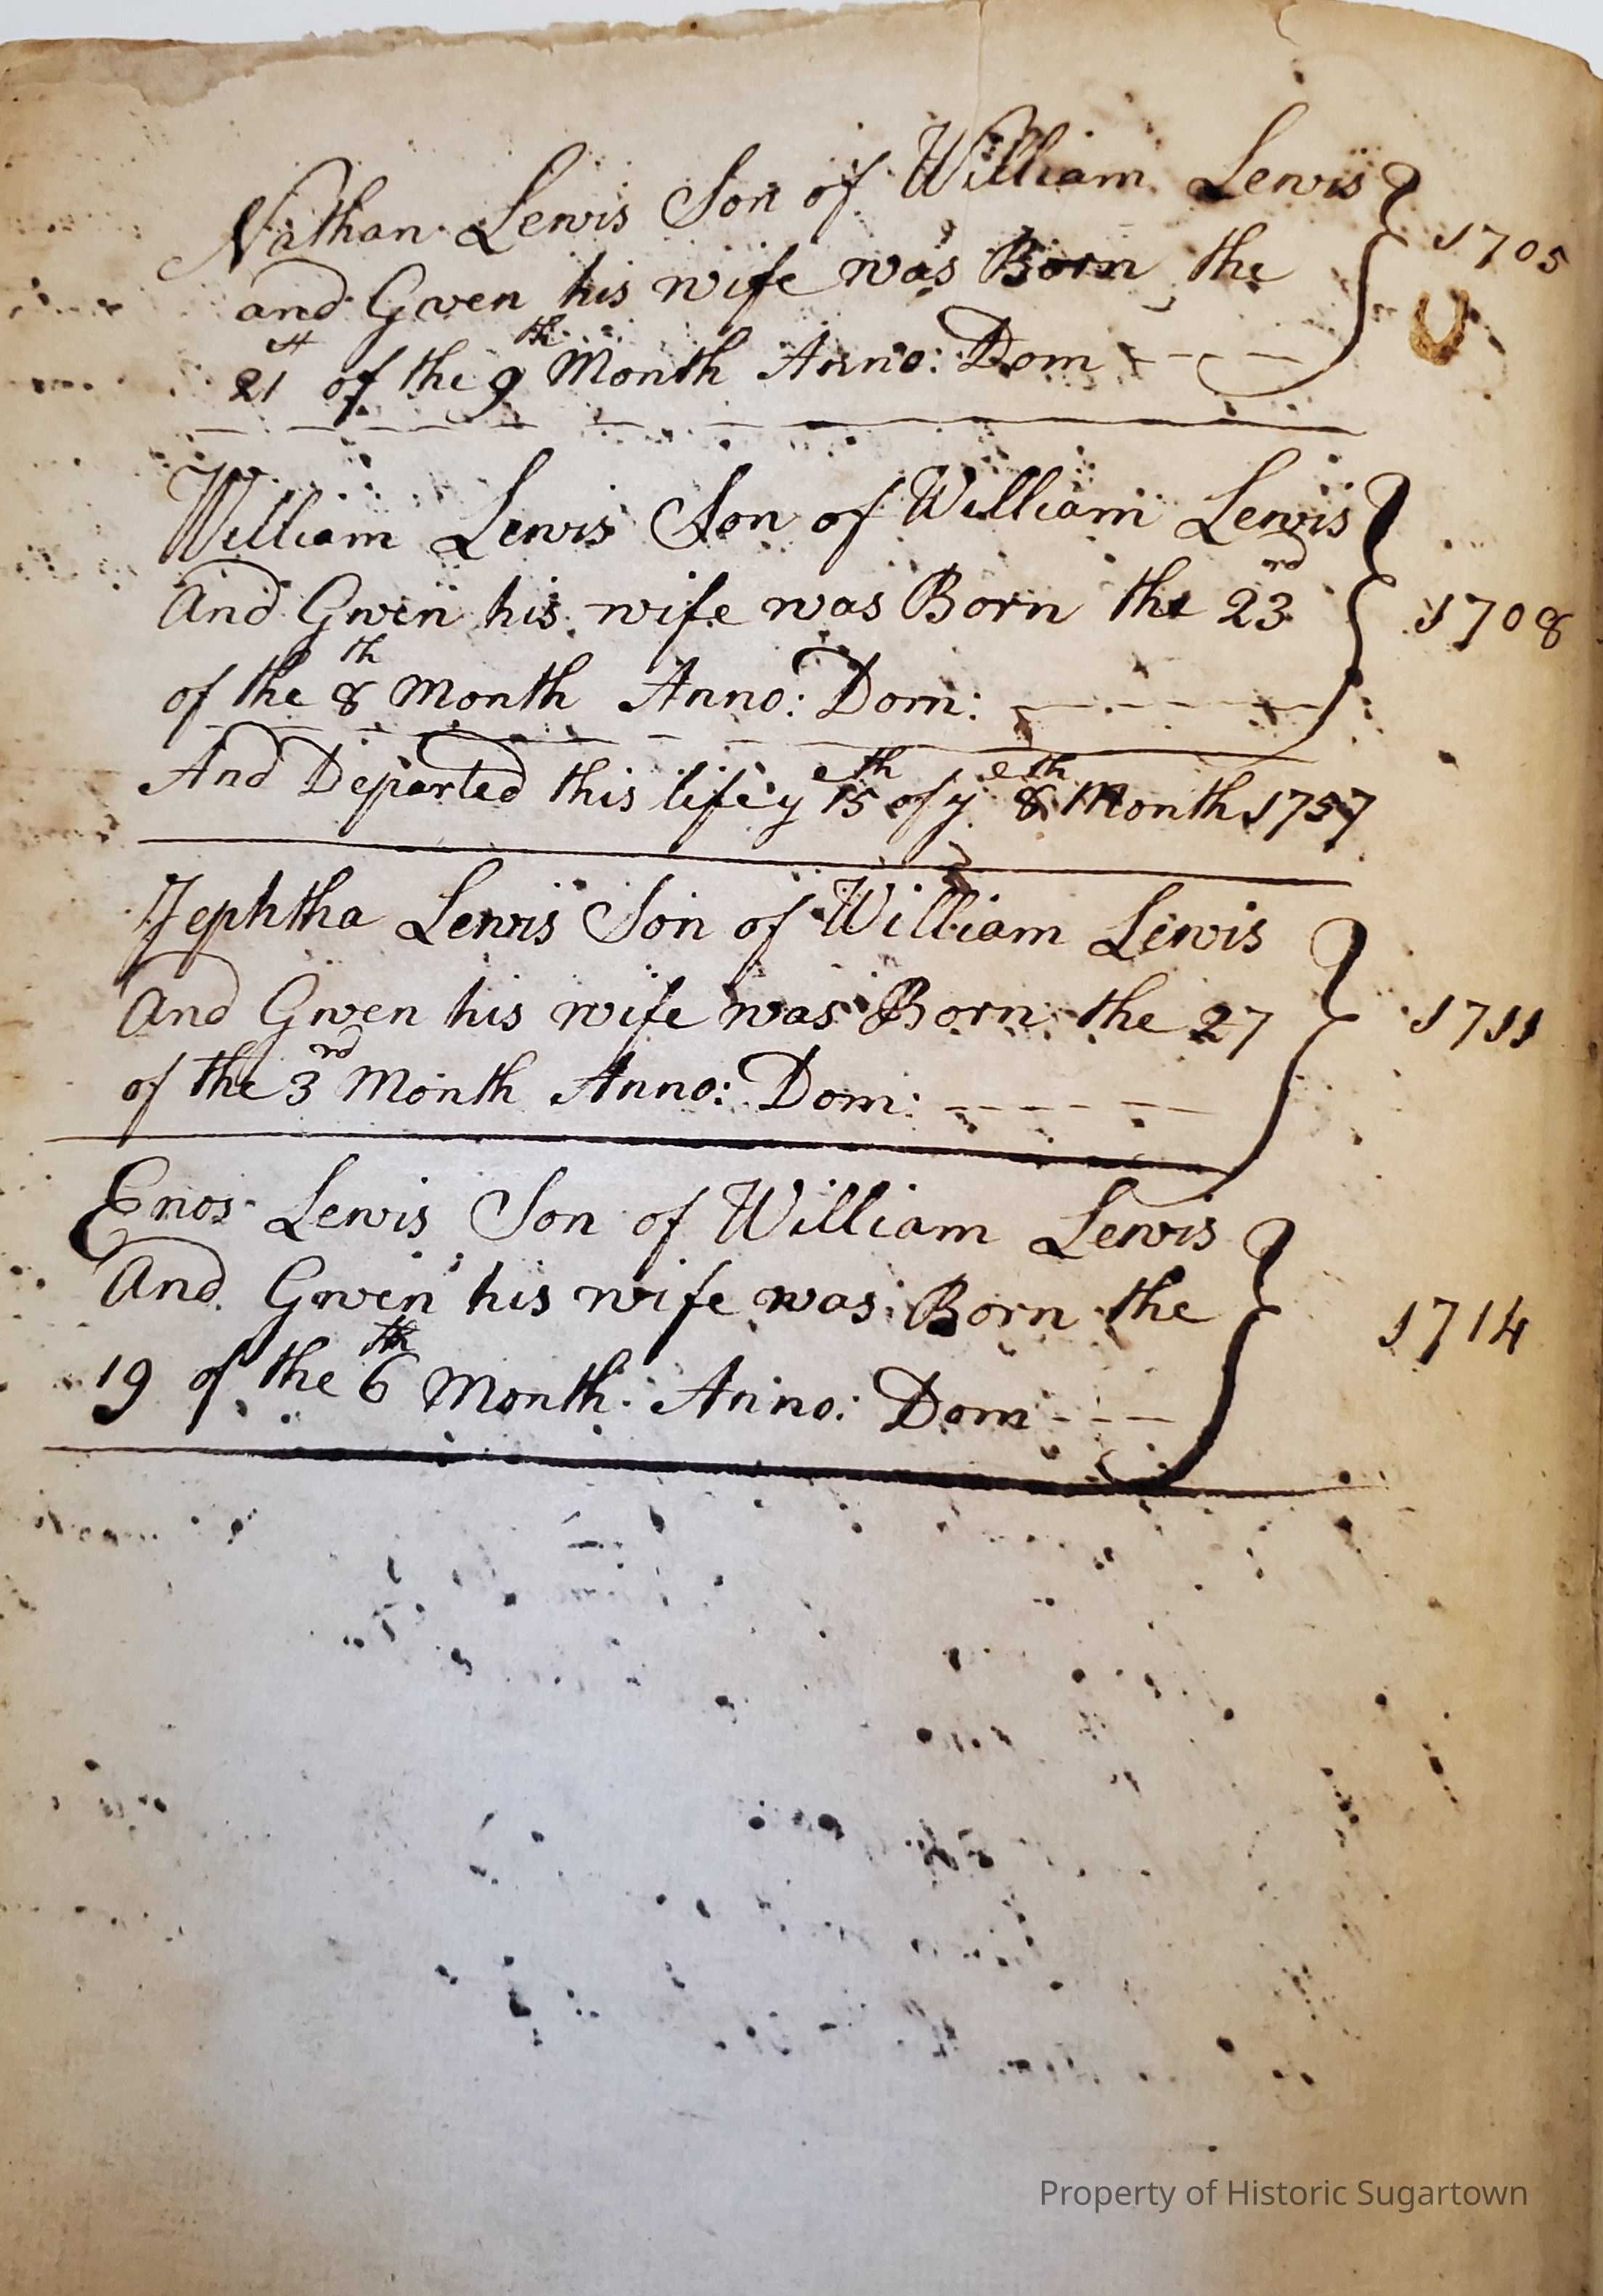 Nathan Lewis Son of William Lewis
and Gwen his wife was Born the 1705
21st of the 9th Month Anno: Dom
William Lewis Son of William Lewis
And Gwen his wife was Born the 23rd 1708
of the 8th Month Anno: Dom:
And Departed this life ye 15th of ye 8th Month 1757
Jephtha Lewis Son of William Lewis
And Gwen his wife was Born the 27 1711
of the 3rd Month Anno: Dom:
Enos Lewis Son of William Lewis
And Gwen his wife was Born the 1714
19 of the 6th Month Anno: Dom
Property of Historic Sugartown